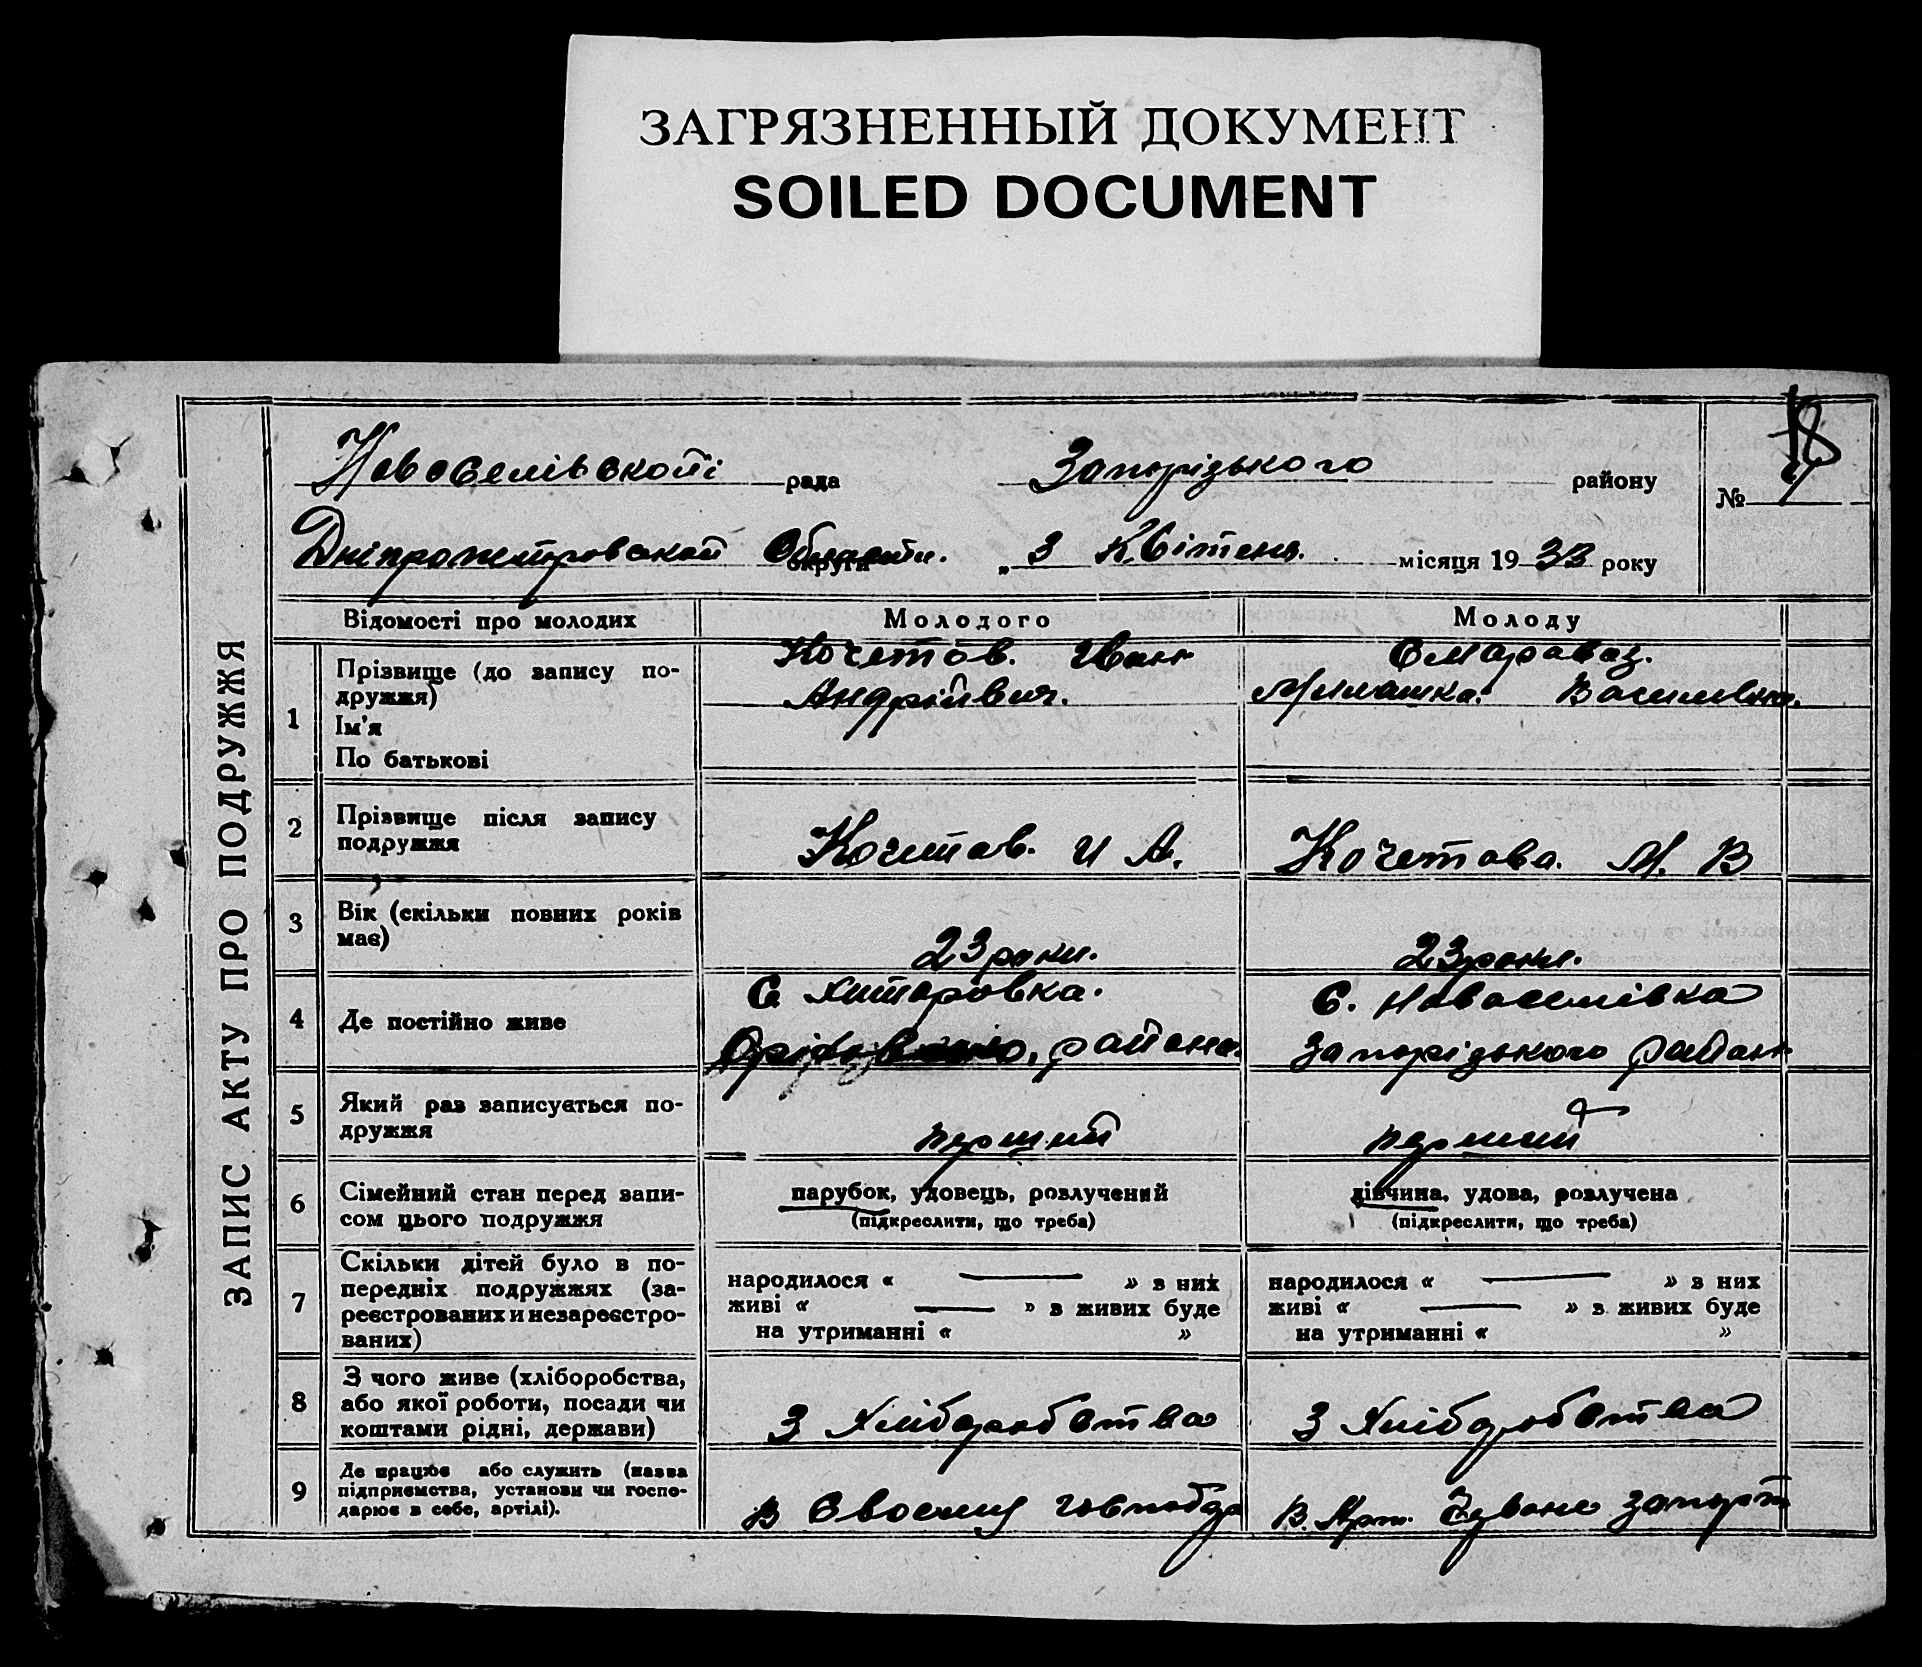 ЗАГРЯЗНЕННЫЙ ДОКУМЕНТ
SOILED DOCUMENT
ЗАПИС АКТУ ПРО ПОДРУЖЖЯ
Новоселівської рада Запорізького району
№
Дніпропетровской Области. округи „ 3 Квітень. місяця 1933 року
Відомості про молодих Молодого Молоду
1 Прізвище (до запису подружжя)
Ім'я
По батькові
Кочетов. Иван
Андрійвич.
Васильевна.
2 Прізвище після запису
подружжя
Кочетов. И А. Кочетова. М. В
3 Вік (скільки повних років
має)
23 роки. 23 роки.
4 Де постійно живе
С. района.
С. Новоселівка
Запорізького район
5 Який раз записується по-
дружжя
перший перший
6 Сімейний стан перед запи-
сом цього подружжя
парубок, удовець, розлучений
(підкреслити, що треба)
дівчина, удова, розлучена
(підкреслити, що треба)
7 Скільки дітей було в по-
передніх подружжях (за-
реєстрованих и незареєстро-
ваних)
народилося « — » з них
живі « — » в живих буде
на утриманні « »
народилося « — » з них
живі « — » в живих буде
на утриманні « »
8 З чого живе (хліборобства,
або якої роботи, посади чи
коштами рідні, держави)
З Хліборобства З Хліборобства
9 Де працює або служить (назва
підприємства, установи чи госпо-
дарює в себе, артілі).
В Своему
В. Арт.